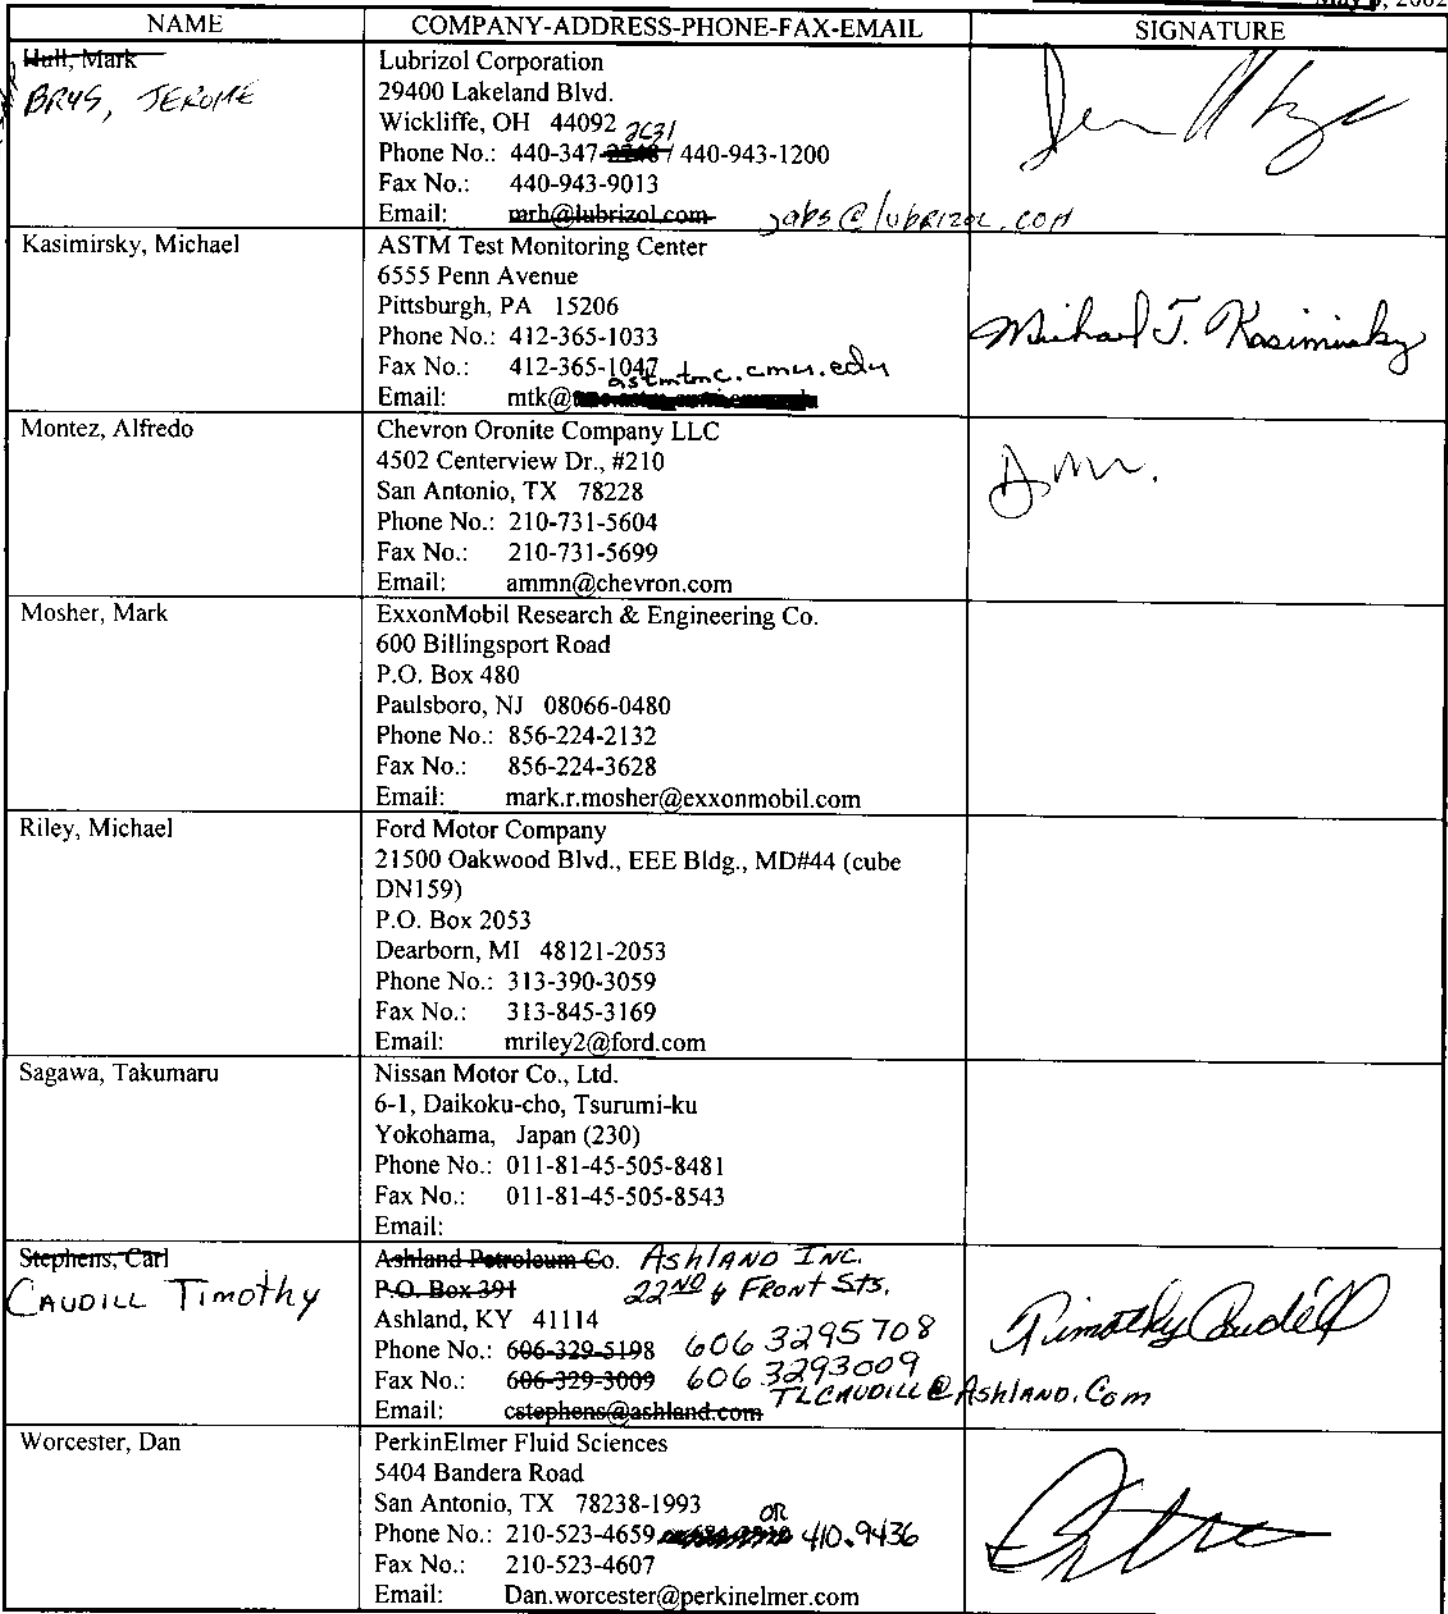 May , 2002
NAME COMPANY-ADDRESS-PHONE-FAX-EMAIL SIGNATURE
Hull, Mark
BRYS, JEROME
Lubrizol Corporation
29400 Lakeland Blvd.
Wickliffe, OH 44092
2631
Phone No.: 440-347- / 440-943-1200
Fax No.: 440-943-9013
Email: mrh@lubrizol.com jabs@lubrizol.com
Kasimirsky, Michael
ASTM Test Monitoring Center
6555 Penn Avenue
Pittsburgh, PA 15206
Phone No.: 412-365-1033
Fax No.: 412-365-1047
astmtmc.cmu.edu
Email: mtk@
Michael T. Kasimirsky
Montez, Alfredo
Chevron Oronite Company LLC
4502 Centerview Dr., #210
San Antonio, TX 78228
Phone No.: 210-731-5604
Fax No.: 210-731-5699
Email: ammn@chevron.com
Mosher, Mark
ExxonMobil Research & Engineering Co.
600 Billingsport Road
P.O. Box 480
Paulsboro, NJ 08066-0480
Phone No.: 856-224-2132
Fax No.: 856-224-3628
Email: mark.r.mosher@exxonmobil.com
Riley, Michael
Ford Motor Company
21500 Oakwood Blvd., EEE Bldg., MD#44 (cube
DN159)
P.O. Box 2053
Dearborn, MI 48121-2053
Phone No.: 313-390-3059
Fax No.: 313-845-3169
Email: mriley2@ford.com
Sagawa, Takumaru
Nissan Motor Co., Ltd.
6-1, Daikoku-cho, Tsurumi-ku
Yokohama, Japan (230)
Phone No.: 011-81-45-505-8481
Fax No.: 011-81-45-505-8543
Email:
Stephens, Carl
CAUDILL Timothy
Ashland Petroleum Co. ASHLAND INC.
P.O. Box 391 22ND & FRONT STS.
Ashland, KY 41114
Phone No.: 606-329-5198 606 3295708
Fax No.: 606-329-3009 606 3293009
Email: cstephens@ashland.com TLCAUDILL@AshLAND.Com
Timothy Caudill
Worcester, Dan
PerkinElmer Fluid Sciences
5404 Bandera Road
San Antonio, TX 78238-1993
Phone No.: 210-523-4659 OR 410.9436
Fax No.: 210-523-4607
Email: Dan.worcester@perkinelmer.com